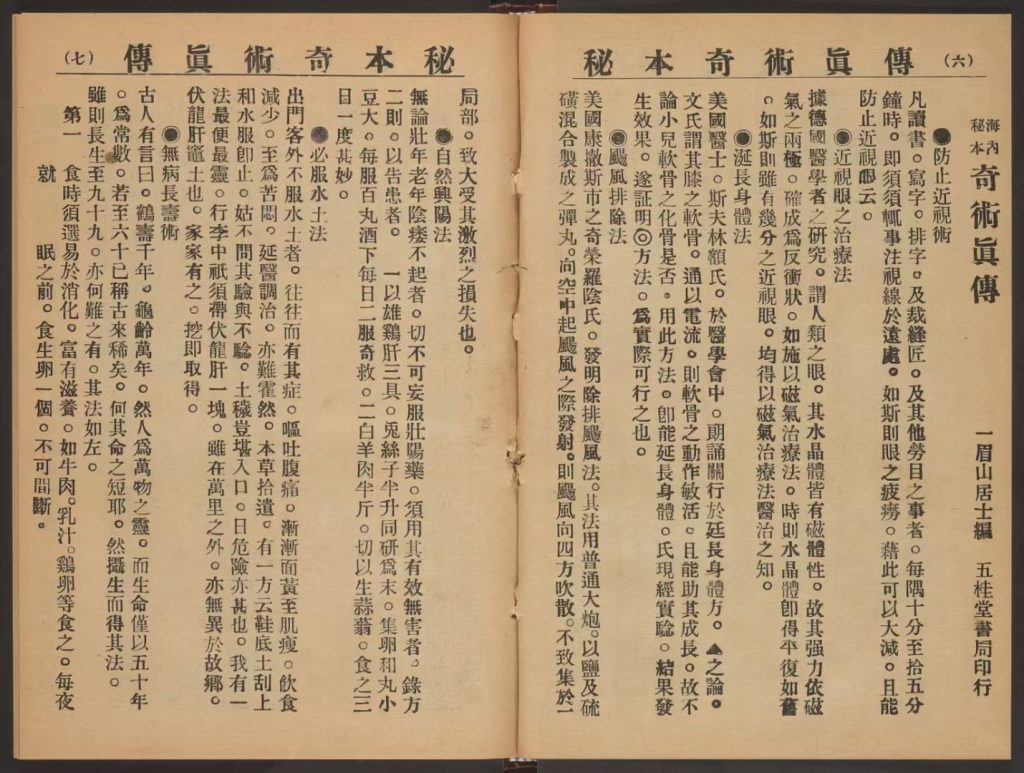 傳眞術奇本秘
（六）
海內
秘本
奇術眞傳
一眉山居士編　五桂堂書局印行
●防止近視術
凡讀書。寫字。排字。及裁縫匠。及其他勞目之事者。每隅十分至拾五分
鐘時。即須須輒事注視線於遠處。如斯則眼之疲癆。藉此可以大減。且能
防止近視眼云。
●近視眼之治療法
據德國醫學者之研究。謂人類之眼。其水晶體皆有磁體性。故其强力依磁
氣之兩極。確成爲反衝狀。如施以磁氣治療法。時則水晶體卽得平復如舊
。如斯則雖有幾分之近視眼。均得以磁氣治療法醫治之知。
●涎長身體法
美國醫士。斯夫林額氏。於醫學會中。朗誦關行於廷長身體方。▲之論。
文氏謂其膝之軟骨。通以電流。則軟骨之動作敏活。且能助其成長。故不
論小兒軟骨之化骨是否。用此方法。卽能延長身體。氏現經實驗。結果發
生效果。遂証明◎方法。爲實際可行之也。
●颶風排除法
美國康撒斯市之奇榮羅陰氏。發明除排颶風法。其法用普通大炮。以鹽及硫
磺混合製成之彈丸。向空中起颶風之際發射。則颶風向四方吹散。不致集於一
秘本奇術眞傳
（七）
局部。致大受其激烈之損失也。
●自然興陽法
無論壯年老年陰痿不起者。切不可妄服壯陽藥。須用其有效無害者。錄方
二則。以告患者。　一以雄鷄肝三具。兎絲子半升同研爲末。集卵和丸小
豆大。每服百丸酒下每日二服奇救。二白羊肉半斤。切以生蒜薤。食之三
日一度甚妙。
●必服水土法
出門客外不服水土者。往往而有其症。嘔吐腹痛。漸漸面黃至肌瘦。飲食
減少。至爲苦悶。延醫調治。亦難霍然。本草拾遺。有一方云鞋底土刮上
和水服卽止。姑不問其驗與不驗。土穢豈堪入口。日危險亦甚也。我有一
法最便最靈。行李中祇須帶伏龍肝一塊。雖在萬里之外。亦無異於故鄉。
伏龍肝竈土也。家家有之。挖即取得。
●無病長壽術
古人有言曰。鶴壽千年。龜齡萬年。然人爲萬物之靈。而生命僅以五十年
。爲常數。若至六十已稱古來稀矣。何其命之短耶。然攝生而得其法。
雖則長生至九十九。亦何難之有。其法如左。
第一　食時須選易於消化。富有滋養。如牛肉。乳汁。鷄卵等食之。每夜
就　眠之前。食生卵一個。不可間斷。